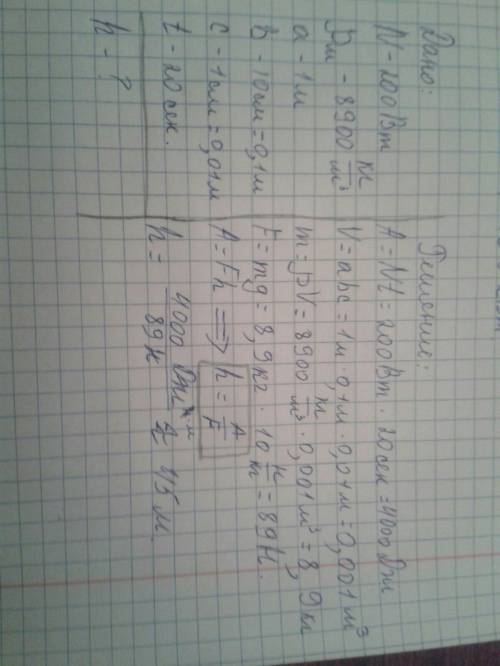 Дано:
N - 200 Вт
ρм - 8900 кг/м³
a - 1 м
b - 10 см = 0,1 м
c - 1 см = 0,01 м
t - 20 сек.
h - ?
Решение:
A = Nt = 200 Вт · 20 сек = 4000 Дж
V = abc = 1 м · 0,1 м · 0,01 м = 0,001 м³
m = ρV = 8900 кг/м³ · 0,001 м³ = 8,9 кг
F = mg = 8,9 кг · 10 Н/кг = 89 Н.
A = Fh ⟹ h = A/F
h = 4000 Дж / 89 Н ≈ 45 м.